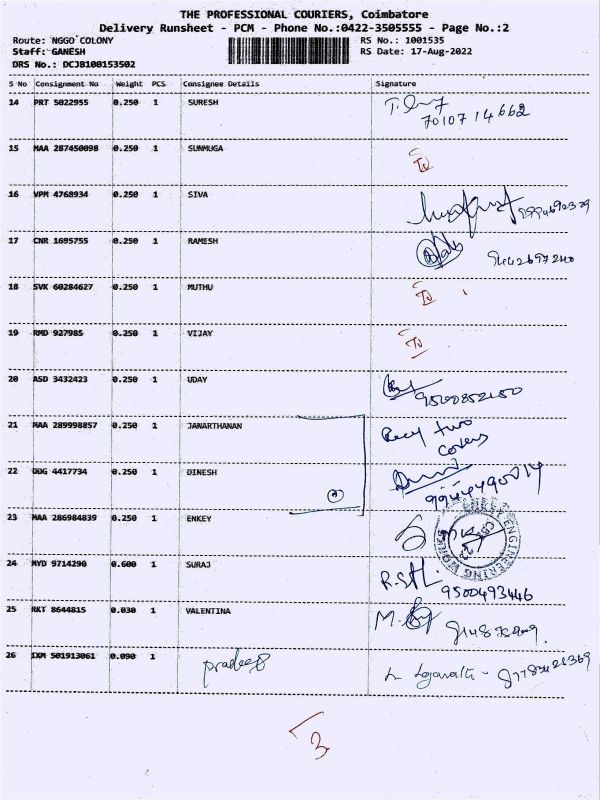 THE PROFESSIONAL COURIERS, Coimbatore
Delivery Runsheet - PCM - Phone No.:0422-3505555 - Page No.:2
Route: NGGO COLONY RS No.: 1001535
Staff: GANESH RS Date: 17-Aug-2022
DRS No.: DCJB100153502
S No Consignment No Weight PCS Consignee Details Signature
14 PRT 5022955 0.250 1 SURESH
7010714662
15 MAA 287450098 0.250 1 SUNMUGA
16 VPM 4768934 0.250 1 SIVA
17 CNR 1695755 0.250 1 RAMESH
9442697240
18 SVK 60284627 0.250 1 MUTHU
19 RMD 927985 0.250 1 VIJAY
20 ASD 3432423 0.250 1 UDAY
21 MAA 289998857 0.250 1 JANARTHANAN
two
covers
22 DDG 4417734 0.250 1 DINESH
23 MAA 286984839 0.250 1 ENKEY
24 MYD 9714290 0.600 1 SURAJ
9500493446
25 RKT 8644815 0.030 1 VALENTINA
26 IXM 501913061 0.090 1 pradeep
3